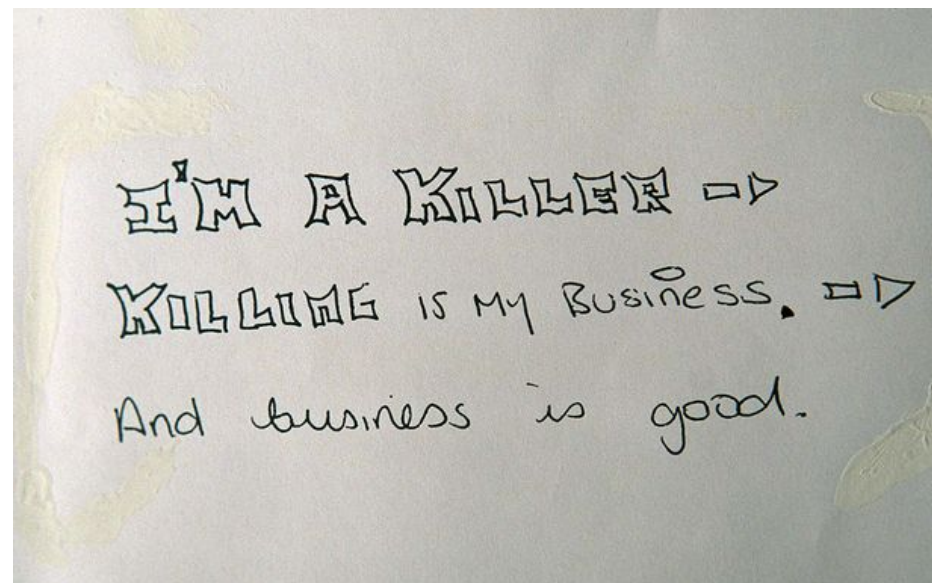 I'M A KILLER ⇨
KILLING IS MY BUSINESS. ⇨
And business is good.